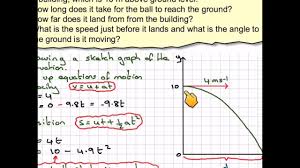 building, which is 10 m above ground level.
How long does it take for the ball to reach the ground?
How far does it land from from the building?
What is the speed just before it lands and what is the angle to
the ground is it moving?
owing a sketch graph of the
up equations of motion
v = u + at
= 0 - 9.8t = -9.8t
s = ut + ½at²
= 4t
= 10 - 4.9t²
y
10
4 ms⁻¹